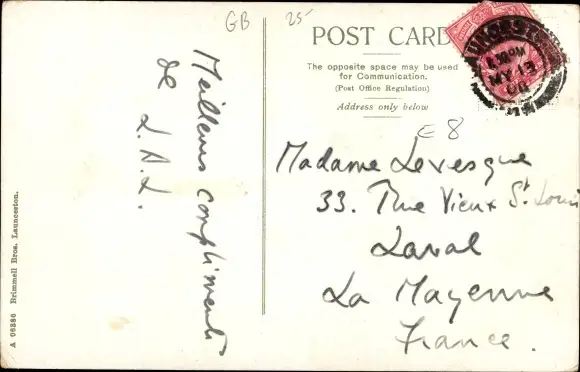 GB
25-
POST CARD
The opposite space may be used
for Communication.
(Post Office Regulation)
Address only below
E 8
Meilleurs compliments
de
L.A.L.
Madame Levesque
33. Rue Vieux St Louis
Laval
La Mayenne
France.
A 06386 Brimmell Bros. Launceston.
MY 13